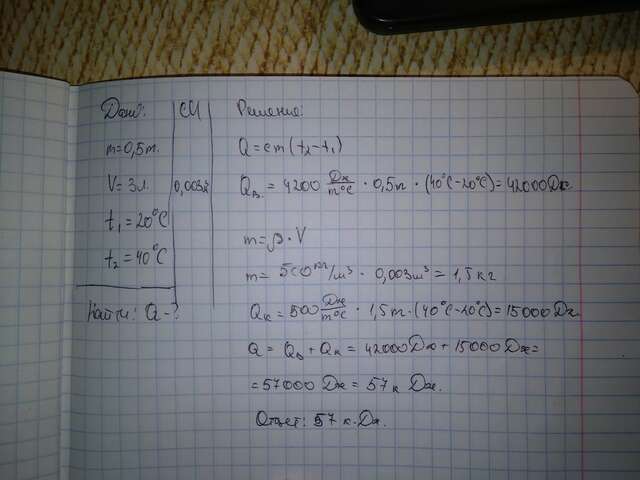 Дано:
m=0,5m.
V=3л.
t₁=20°C
t₂=40°C
Найти: Q-?
СИ
0,003
Решение:
Q=cm(t₂-t₁)
Qв.=4200 Дж/m°C · 0,5m · (40°C-20°C)=42000Дж.
m=ρ·V
m= 500 m/м³ · 0,003м³ = 1,5 кг
Qк=500 Дж/m°C · 1,5m·(40°C-20°C)=15000Дж
Q= Qв+Qк=42000Дж+15000Дж=
=57000 Дж=57к Дж.
Ответ: 57 к.Дж.